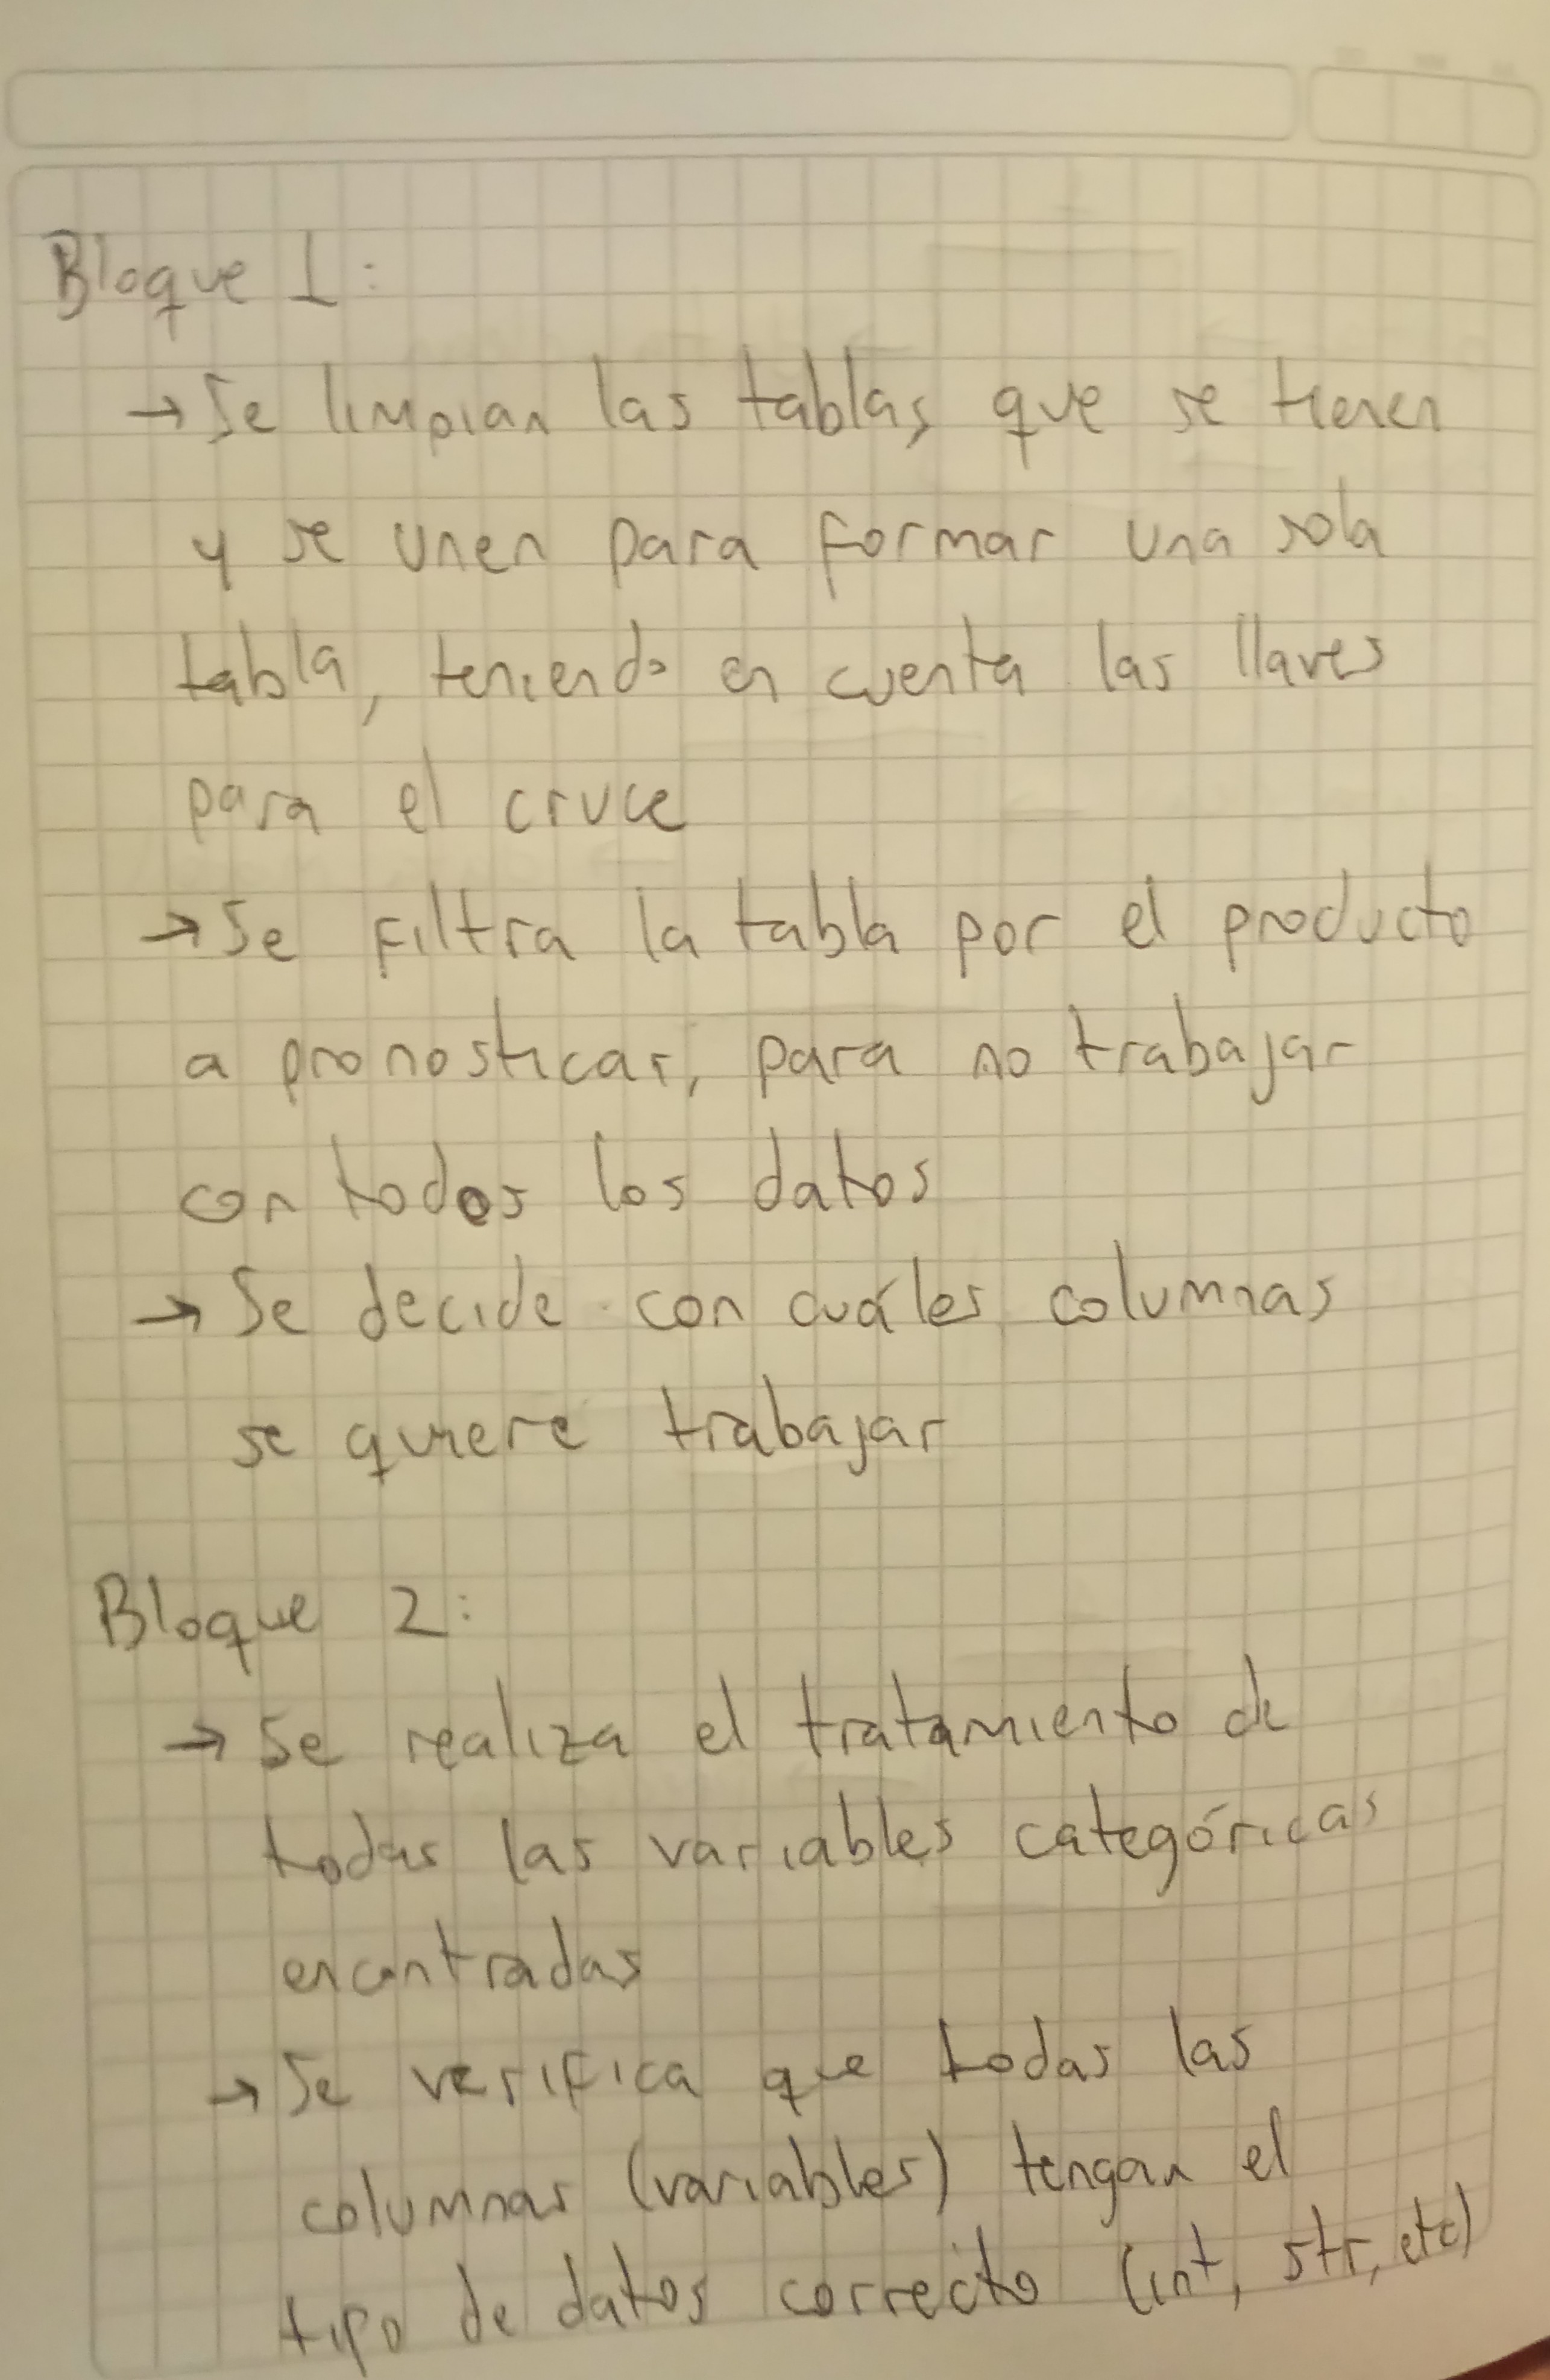 Bloque 1:
→ Se limpian las tablas que se tienen
y se unen para formar una sola
tabla, teniendo en cuenta las llaves
para el cruce
→ Se filtra la tabla por el producto
a pronosticar, para no trabajar
con todos los datos
→ Se decide con cuáles columnas
se quiere trabajar
Bloque 2:
→ Se realiza el tratamiento de
todas las variables categóricas
encontradas
→ Se verifica que todas las
columnas (variables) tengan el
tipo de datos correcto (int, str, etc)